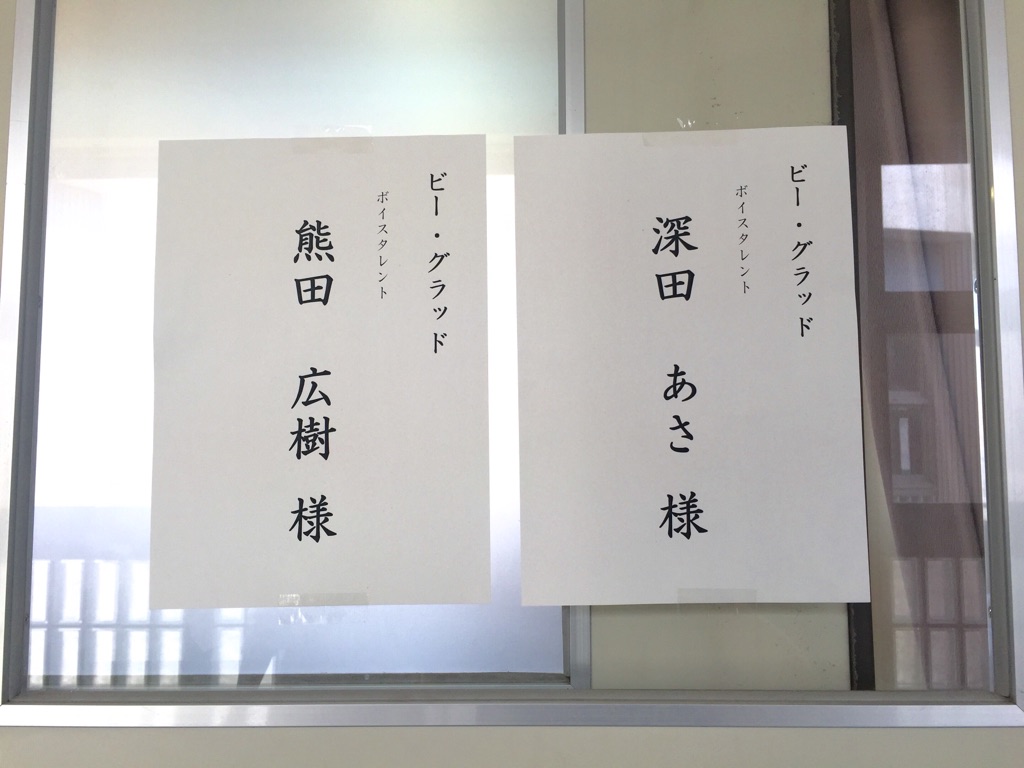 ビー・グラッド
ボイスタレント
深田 あさ 様
ビー・グラッド
ボイスタレント
熊田 広樹 様